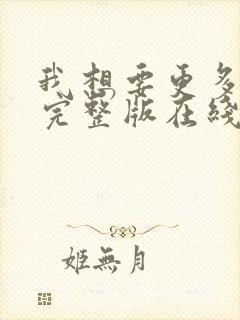 我想要更多
完整版在綫
姬無月